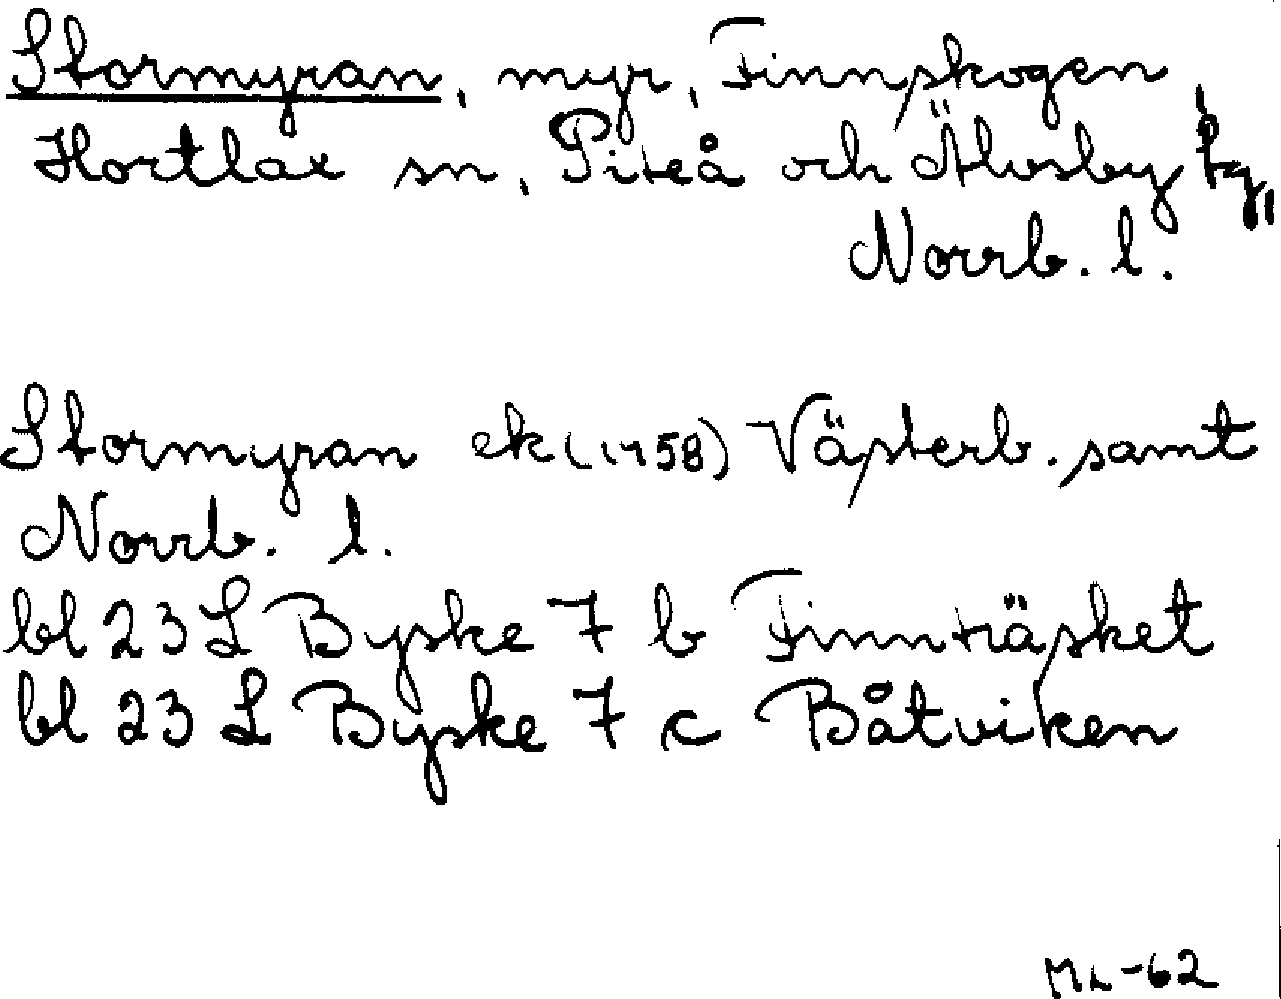 Stormyran, myr, Finnskogen,
Hortlax sn, Piteå och Älvsby tg,
Norrb. l.
Stormyran ek (1958) Västerb. samt
Norrb. l.
bl 23 L Byske 7 b Finnträsket
bl 23 L Byske 7 c Båtviken
ML-62